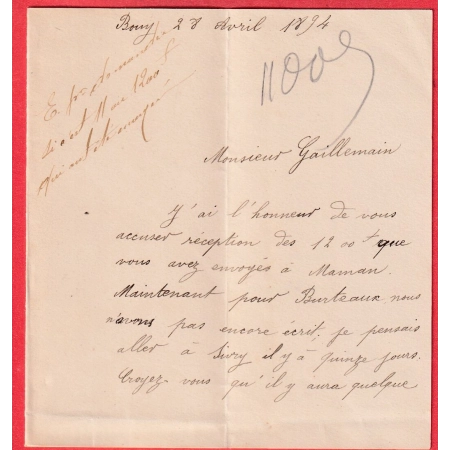 Bouy 28 Avril 1894
1100
Monsieur Gaillemain
J'ai l'honneur de vous
accuser réception des 1200 f que
vous avez envoyés à Maman.
Maintenant pour Burteaux nous
n'avons pas encore écrit, je pensais
aller à Sivry il y à quinze jours.
Croyez vous qu'il y aura quelque